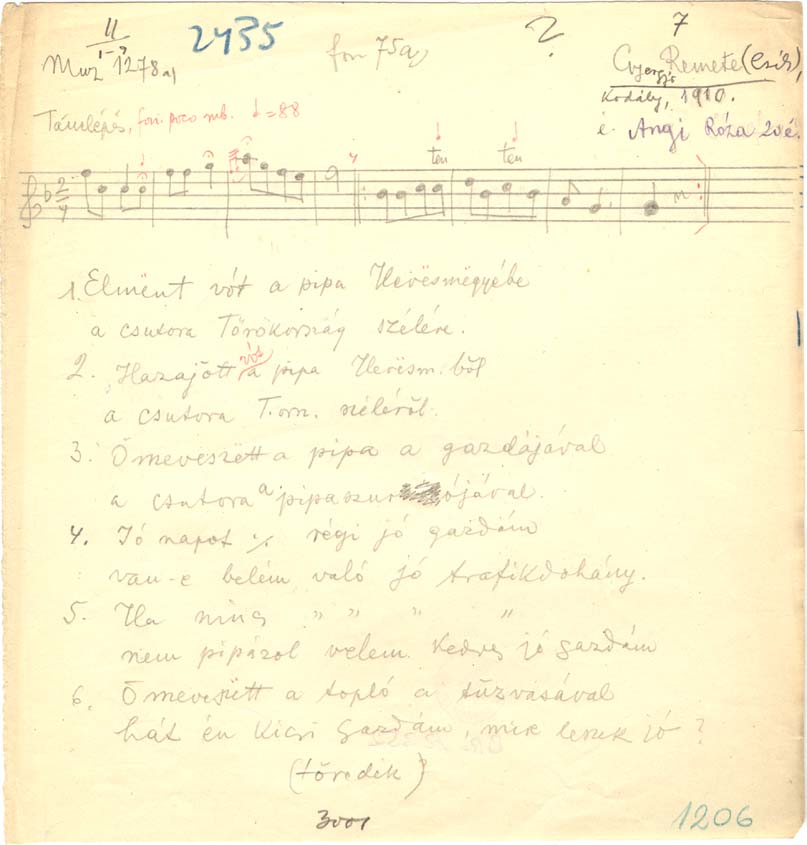 II
1-9
Muz 1278 a)
2435
fon 75a)
?
7
Gyergyó Remete (Csík),
Kodály, 1910.
é. Angi Róza 20 é.
Támlépés, fon. poco mb. ♩=88
ten ten
2/4
1. Elmënt vót a pipa Hevësmëgyébe
a csutora Törökország szélére.
2. Hazajött vót a pipa Hevësm.ből
a csutora T.orsz. széléről.
3. Őmeveszëtt a pipa a gazdájával
a csutora a pipaszurkójával.
4. Jó napot ./. régi jó gazdám
van-e belém való jó trafikdohány.
5. Ha nincs „ „ „ „
nem pipázol velem kedves jó gazdám
6. Őmeveszëtt a topló a tűzvasával
hát én kicsi gazdám, mire leszek jó?
(töredék)
3001
1206